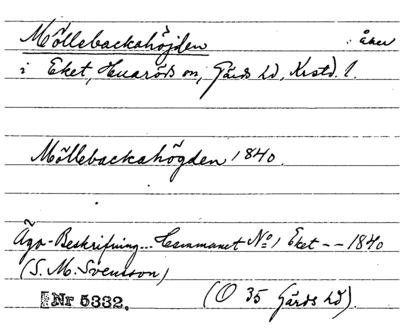 Möllebackahöjden : åker
i Eket, Huaröds sn, Gärds hd, Krstd. l.
Möllebackahögden 1840.
Ägo-Beskrifning... Hemmanet No 1 Eket -- 1840
(S. M. Svensson)
Nr 5332. (O 35 Gärds hd).